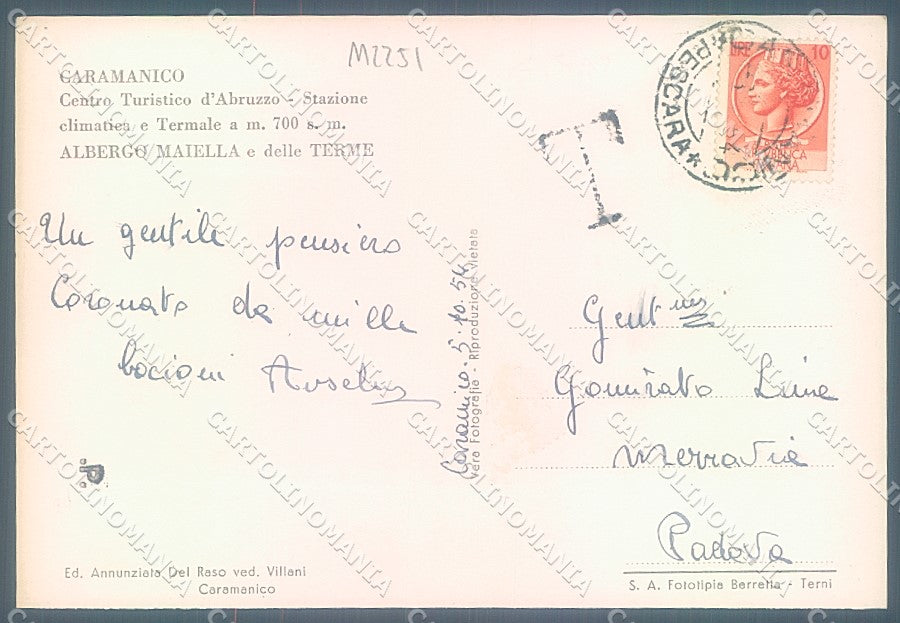 M2251
CARAMANICO
Centro Turistico d'Abruzzo - Stazione
climatica e Termale a m. 700 s. m.
ALBERGO MAIELLA e delle TERME
Un gentile pensiero
Coronato da mille
bacioni
Caramanico. 5. 10. 54
Vera Fotografia - Riproduzione Vietata
T
PESCARA
LIRE 10
Gent
Gomirato Lina
Padova
Ed. Annunziata Del Raso ved. Villani
Caramanico
S. A. Fototipia Berretta - Terni
CARTOLINOMANIA